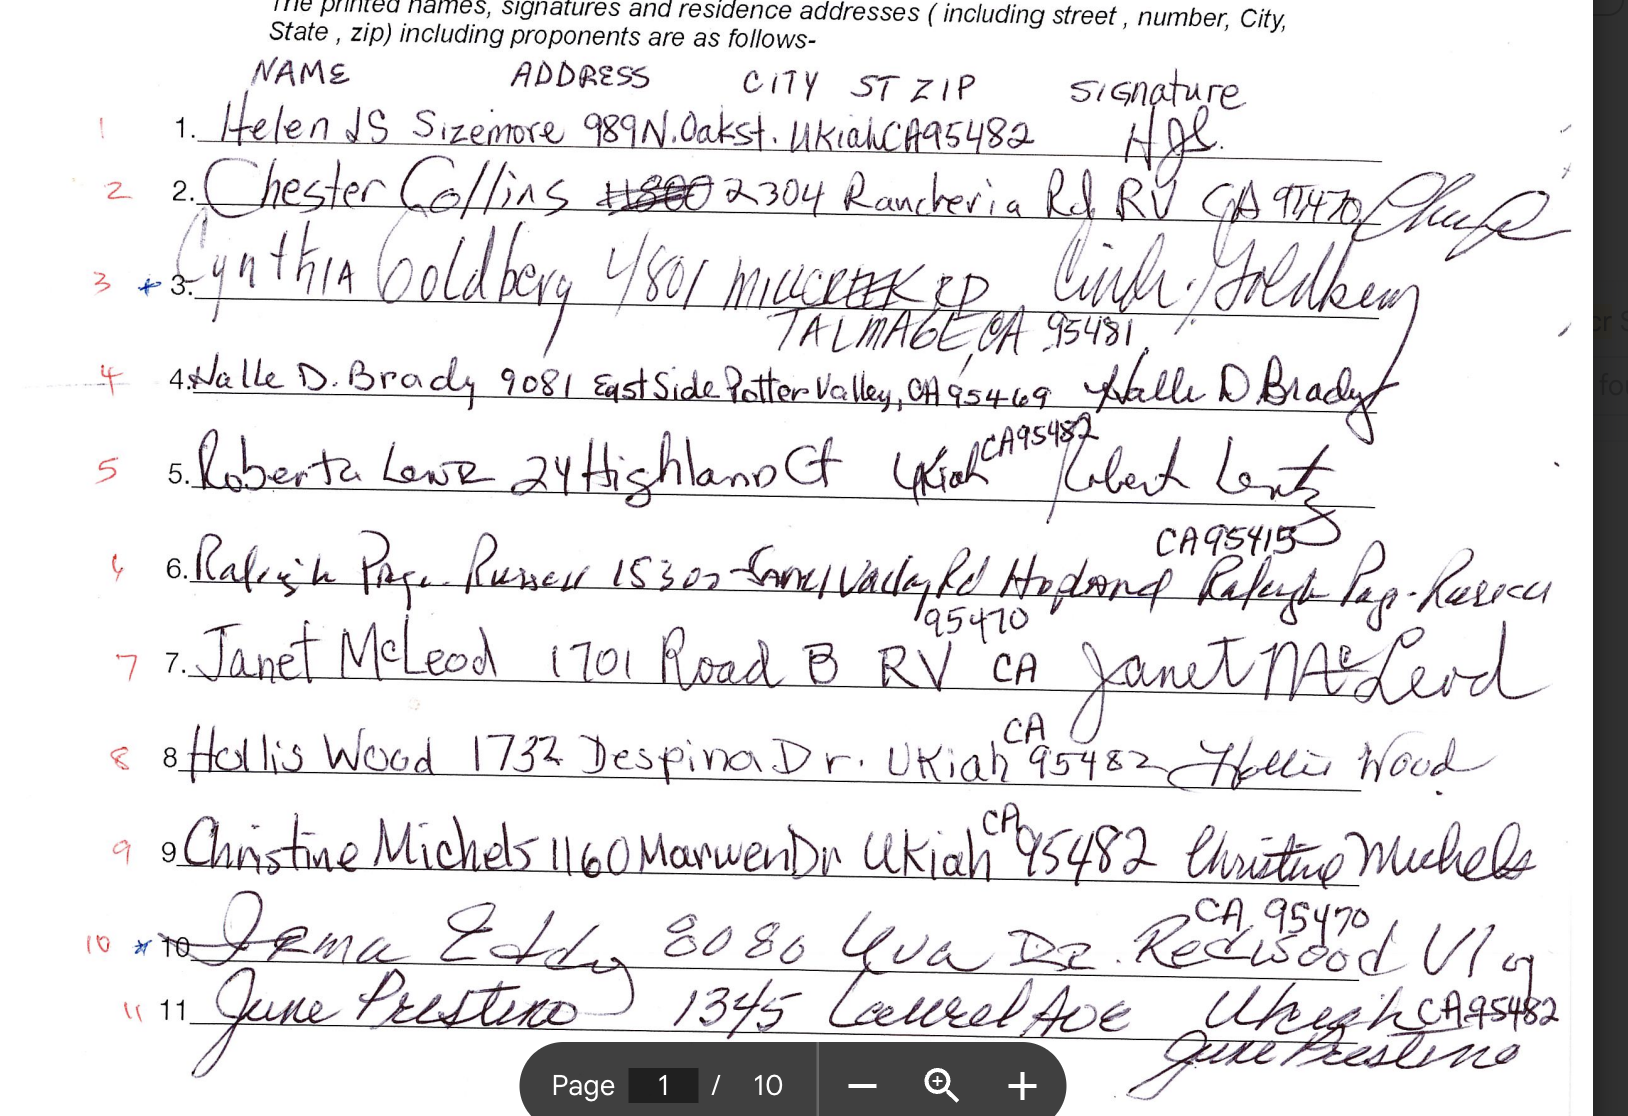 The printed names, signatures and residence addresses ( including street , number, City,
State , zip) including proponents are as follows-
NAME ADDRESS CITY ST ZIP Signature
1 1. Helen JS Sizemore 989 N. Oak st. Ukiah CA 95482 HJS.
2 2. Chester Collins 2304 Rancheria Rd RV CA 95470
3 * 3. Cynthia Goldberg 4801 MILLCREEK RD Goldberg
TALMAGE, CA 95481
4 4. Halle D. Brady 9081 East Side Potter Valley, CA 95469 Halle D Brady
5 5. Roberta 24 Highland Ct Ukiah CA 95482
CA 95415
6 6. Raleigh Page Russell Valley Rd Hopland Raleigh Page-Russell
95470
7 7. Janet McLeod 1701 Road B RV CA Janet McLeod
CA
8 8 Hollis Wood 1732 Despina Dr. Ukiah 95482 Hollis Wood
CA
9 9 Christine Michels 1160 Marwen Dr Ukiah 95482 Christine Michels
CA 95470
10 * 10 Irma Eddy 8080 Uva Dr. Redwood Vly
11 11 June Prestino 1345 Laurel Ave Ukiah CA 95482
June Prestino
Page 1 / 10